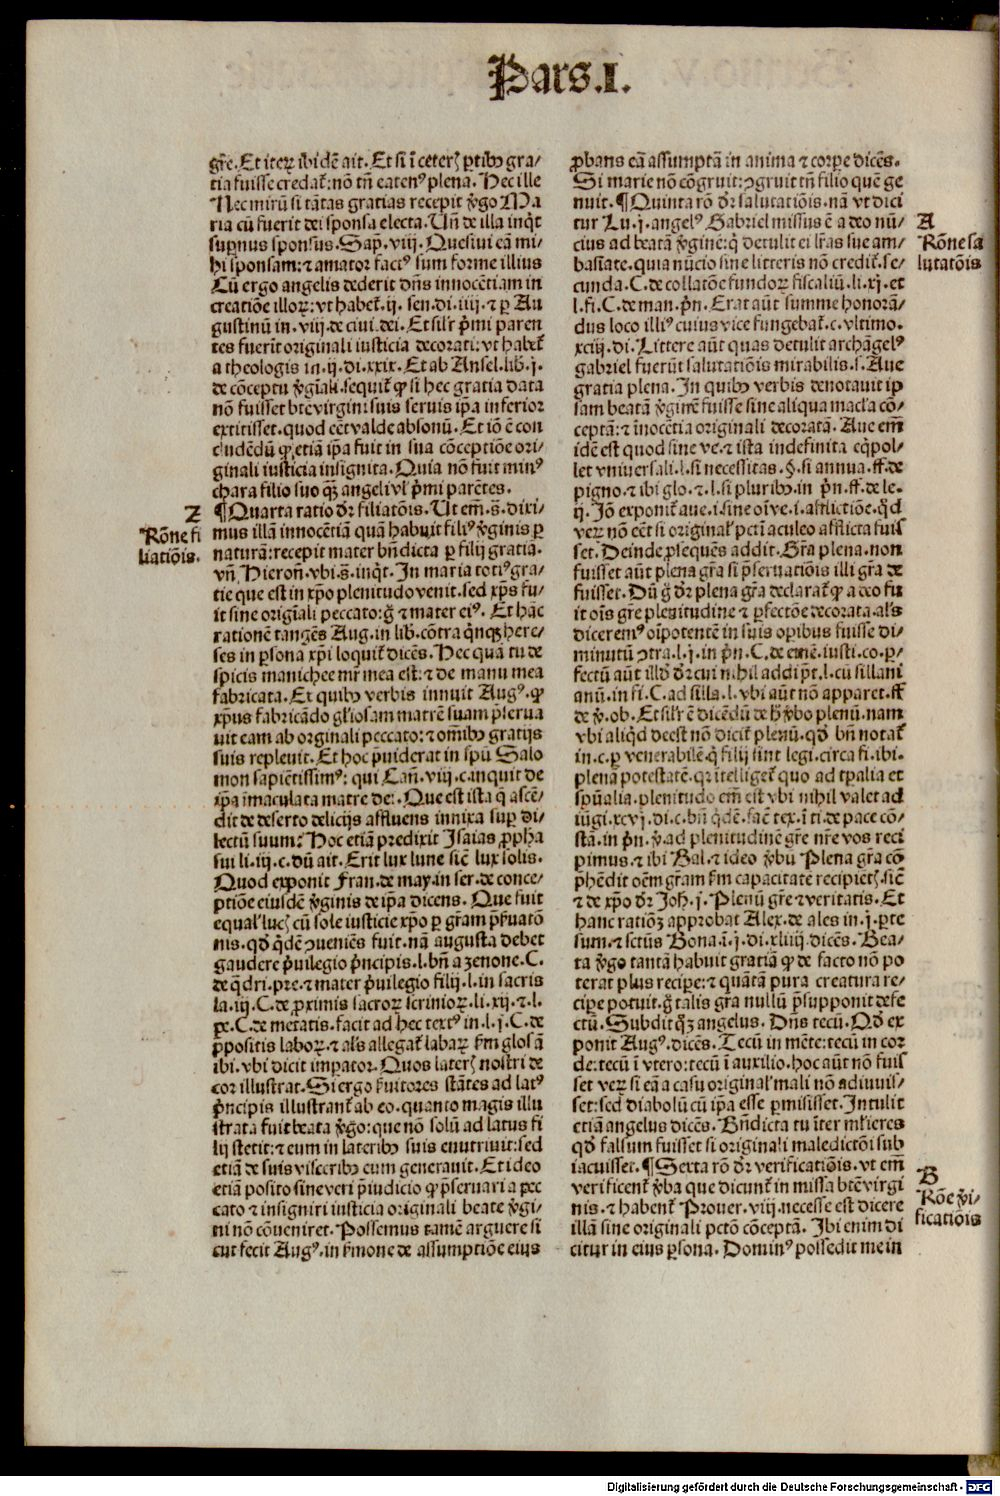 Pars.I.
gr̄e. Et iterꝝ ibidē ait. Et si ī ceteris ꝑtibꝰ gra/
tia fuisse credat̄: nō tn̄ eatenꝰ plena. Hec ille
Nec mirū si tātas gratias recepit ꝟgo Ma
ria cū fuerit dei sponsa electa. Un̄ de illa inqͥt
suꝑnus sponsus. Sap. viij. Quesiui eā mi/
hi sponsam: ⁊ amator factꝰ sum forme illius
Cū ergo angelis dederit dn̄s innocētiam in
creatiōe illoꝝ: vt habet̄. ij. sen. di. iiij. ⁊ ꝑ Au
gustinū in. viij. de ciui. dei. Et sil'r p̄mi paren
tes fuerīt originali iusticia decorati: vt habet̄
a theologis in. ij. di. xxix. Et ab Ansel. lib. j.
de cōceptu ꝟgīali. sequit̄ ꝙ si hec gratia data
nō fuisset btē virgini: suis seruis ip̄a inferior
extitisset. quod eēt valde absonū. Et iō ē con
cludēdū ꝙ etiā ip̄a fuit in sua cōceptiōe ori/
ginali iusticia insignita. Quia nō fuit minꝰ
chara filio suo qꝫ angeli vl' p̄mi parētes.
2
Rōne fi
liatiōis.
¶ Quarta ratio dr̄ filiatōnis. Ut em̄. s̄. dixi/
mus illā innocētiā quā habuit filiꝰ ꝟginis ꝑ
naturā: recepit mater bn̄dicta ꝑ filij gratia.
vn̄ Hieron̄. vbi. s̄. inqͥt. In maria totiꝰ gra/
tie que est in xp̄o plenitudo venit. sed xp̄s fu/
it sine origīali peccato: g̊ ⁊ mater eiꝰ. Et hāc
rationē tangēs Aug. in lib. cōtra qͥnqꝫ here/
ses in ꝑsona xp̄i loquit̄ dicēs. Hec quā tu de
spicis manichee mr̄ mea est: ⁊ de manu mea
fabricata. Et quibꝰ verbis innuit Augꝰ. ꝙ
xp̄us fabricādo gl'iosam matrē suam p̄serua
uit eam ab orginali peccato: ⁊ om̄ibꝰ gratijs
suis repleuit. Et hoc p̄uiderat in spū Salo
mon sapiētissimꝰ: qui Can̄. viij. c. inquit de
ip̄a īmaculata matre dei. Que est ista q̄ ascē/
dit de deserto delicijs affluens innixa suꝑ di/
lectū suum: Hoc etiā predixit Isaias ꝓpha
sui li. iij. c. dū ait. Erit lux lune sicē lux solis.
Quod exponit Fran. de may. in ser. de conce/
ptiōe eiusdē ꝟginis de ip̄a dicens. Que fuit
equal' lucis cū sole iusticie xp̄o ꝑ gr̄am p̄ẜuatō
nis. qd̄ qͥdē ꝯueniēs fuit. nā augusta debet
gaudere p̄uilegio p̄ncipis. l. bn̄ a zenone. C.
de qͣdri. pre. ⁊ mater p̄uilegio filij. l. in sacris
la. iij. C. de ꝓximis sacroꝝ scrinioꝝ. li. xij. ⁊ l.
pe. C. de metatis. facit ad hec textꝰ in. l. j. C. de
p̄positis laboꝝ. ⁊ al's allegat̄ labaꝝ ẜm glosā
ibi. vbi dicit imꝑator. Quos lateris nostri de
cor illustrat. Si ergo ẜuitores stātes ad latꝰ
p̄ncipis illustrant̄ ab eo. quanto magis illu
strata fuit beata ꝟgo: que nō solū ad latus fi
lij stetit: ⁊ eum in lateribꝰ suis enutriuit: sed
etiā de suis visceribꝰ eum generauit. Et ideo
etiā posito sine veri p̄iudicio ꝙ p̄seruari a pec
cato ⁊ insigniri iusticia originali beate ꝟgi/
ni nō cōueniret. Possemus tamē arguere si
cut fecit Augꝰ. in ẜmone de assumptiōe eius
ꝓbans eā assumptā in anima ⁊ corꝑe dicēs.
Si marie nō cōgruit: ꝯgruit tn̄ filio quē ge
nuit. ¶ Quinta rō dr̄ salutatiōis. nā vt dici
tur Lu. j. angelꝰ Gabriel missus ē a deo nū/
cius ad beatā ꝟginē: q̇ detulit ei lr̄as sue am/
basiate. quia nūcio sine litteris nō credit̄. se/
cunda. C. de collatōe fundoꝝ fiscaliū. li. xj. et
l. fi. C. de man. pn̄. Erat aūt summe honorā/
dus loco illiꝰ cuius vice fungebat̄. c. vltimo.
xciij. di. Littere aūt quas detulit archāgelꝰ
gabriel fuerūt salutatiōis mirabilis. s. Aue
gratia plena. In quibꝰ verbis denotauit ip
sam beatā ꝟginē fuisse sine aliqua macl'a cō/
ceptā: ⁊ īnocētia originali decoratā. Aue em̄
idē est quod sine ve. ⁊ ista indefinita eqͥpol/
let vniuersali. l. si necessitas. §. si annua. ff. de
pigno. ⁊ ibi glo. ⁊ l. si pluribꝰ. in pn̄. ff. de le.
ij. Iō exponit̄ aue. i. sine oī ve. i. afflictiōe. qd̄
veꝝ nō eēt si original' pctī aculeo afflicta fuis
set. Deinde ꝓsequēs addit. Gr̄a plena. non
fuisset aūt plena gr̄a si p̄seruatiōis illi gr̄a de
fuisset. Dū g̊ dr̄ plena gr̄a declarat̄ ꝙ a deo fu
it oīs gr̄e plenitudine ⁊ ꝑfectōe decorata. al's
diceremꝰ oīpotentē in suis oꝑibus fuisse di/
minutū ꝯtra. l. j. in pn̄. C. de emē. iusti. co. ꝑ/
fectū aūt illd̄ dr̄ cui nihil addi pt̄. l. cū sillani
anū. in fi. C. ad silla. l. vbi aūt nō apparet. ff
de ꝟ. ob. Et sil'r ē dicēdū de h̊ ꝟbo plenū. nam
vbi aliqͥd deest nō dicit̄ plenū. qd̄ bn̄ notat̄
in. c. ꝑ venerabilē. q̇ filij sint legi. circa fi. ibi.
plenā potestatē. qr̄ itelliget̄ quo ad tꝑalia et
spūalia. plenitudo em̄ est vbi nihil valet ad
iūgi. xcvj. di. c. bn̄ qͥdē. facē tex. ī ti. de pace cō/
stā. in pn̄. ꝟ. ad plenitudinē gr̄e nr̄e vos reci
pimus. ⁊ ibi Bal. ⁊ ideo ꝟbū Plena gr̄a cō
p̄hēdit oēm gr̄am ẜm capacitatē recipiētis. sicē
⁊ de xp̄o dr̄ Joh. j. Plenū gr̄e ⁊ veritatis. Et
hanc rationꝫ approbat Alex. de ales in. j. ꝑte
sum. ⁊ sctūs Bona. ī. j. di. xliiij. dicēs. Bea/
ta ꝟgo tantā habuit gratiā ꝙ de facto nō po
terat plus reciꝑe: ⁊ quātā pura creatura re/
ciꝑe potuit. g̊ talis gr̄a nullū p̄supponit defe
ctū. Subdit qͦꝫ angelus. Dn̄s tecū. Qd̄ ex
ponit Augꝰ. dicēs. Tecū in mēte: tecū in cor
de: tecū ī vtero: tecū ī auxilio. hoc aūt nō fuis
set veꝝ si eā a casu original' mali nō adiuuis/
set: sed diabolū cū ip̄a esse ꝑmisisset. Intulit
etiā angelus dicēs. Bn̄dicta tu īter ml'ieres
qd̄ falsum fuisset si originali maledictōi sub
iacuisset. ¶ Sexta rō dr̄ verificatiōis. vt em̄
verificent̄ ꝟba que dicunt̄ in missa btē virgi
nis. ⁊ habent̄ Prouer. viij. necesse est dicere
illā sine originali pctō cōceptā. Ibi enim di
citur in eius ꝑsona. Dominꝰ possedit me in
A
Rōne sa
lutatōis
B
Rōe ꝟi/
ficatiōis
Digitalisierung gefördert durch die Deutsche Forschungsgemeinschaft - DFG